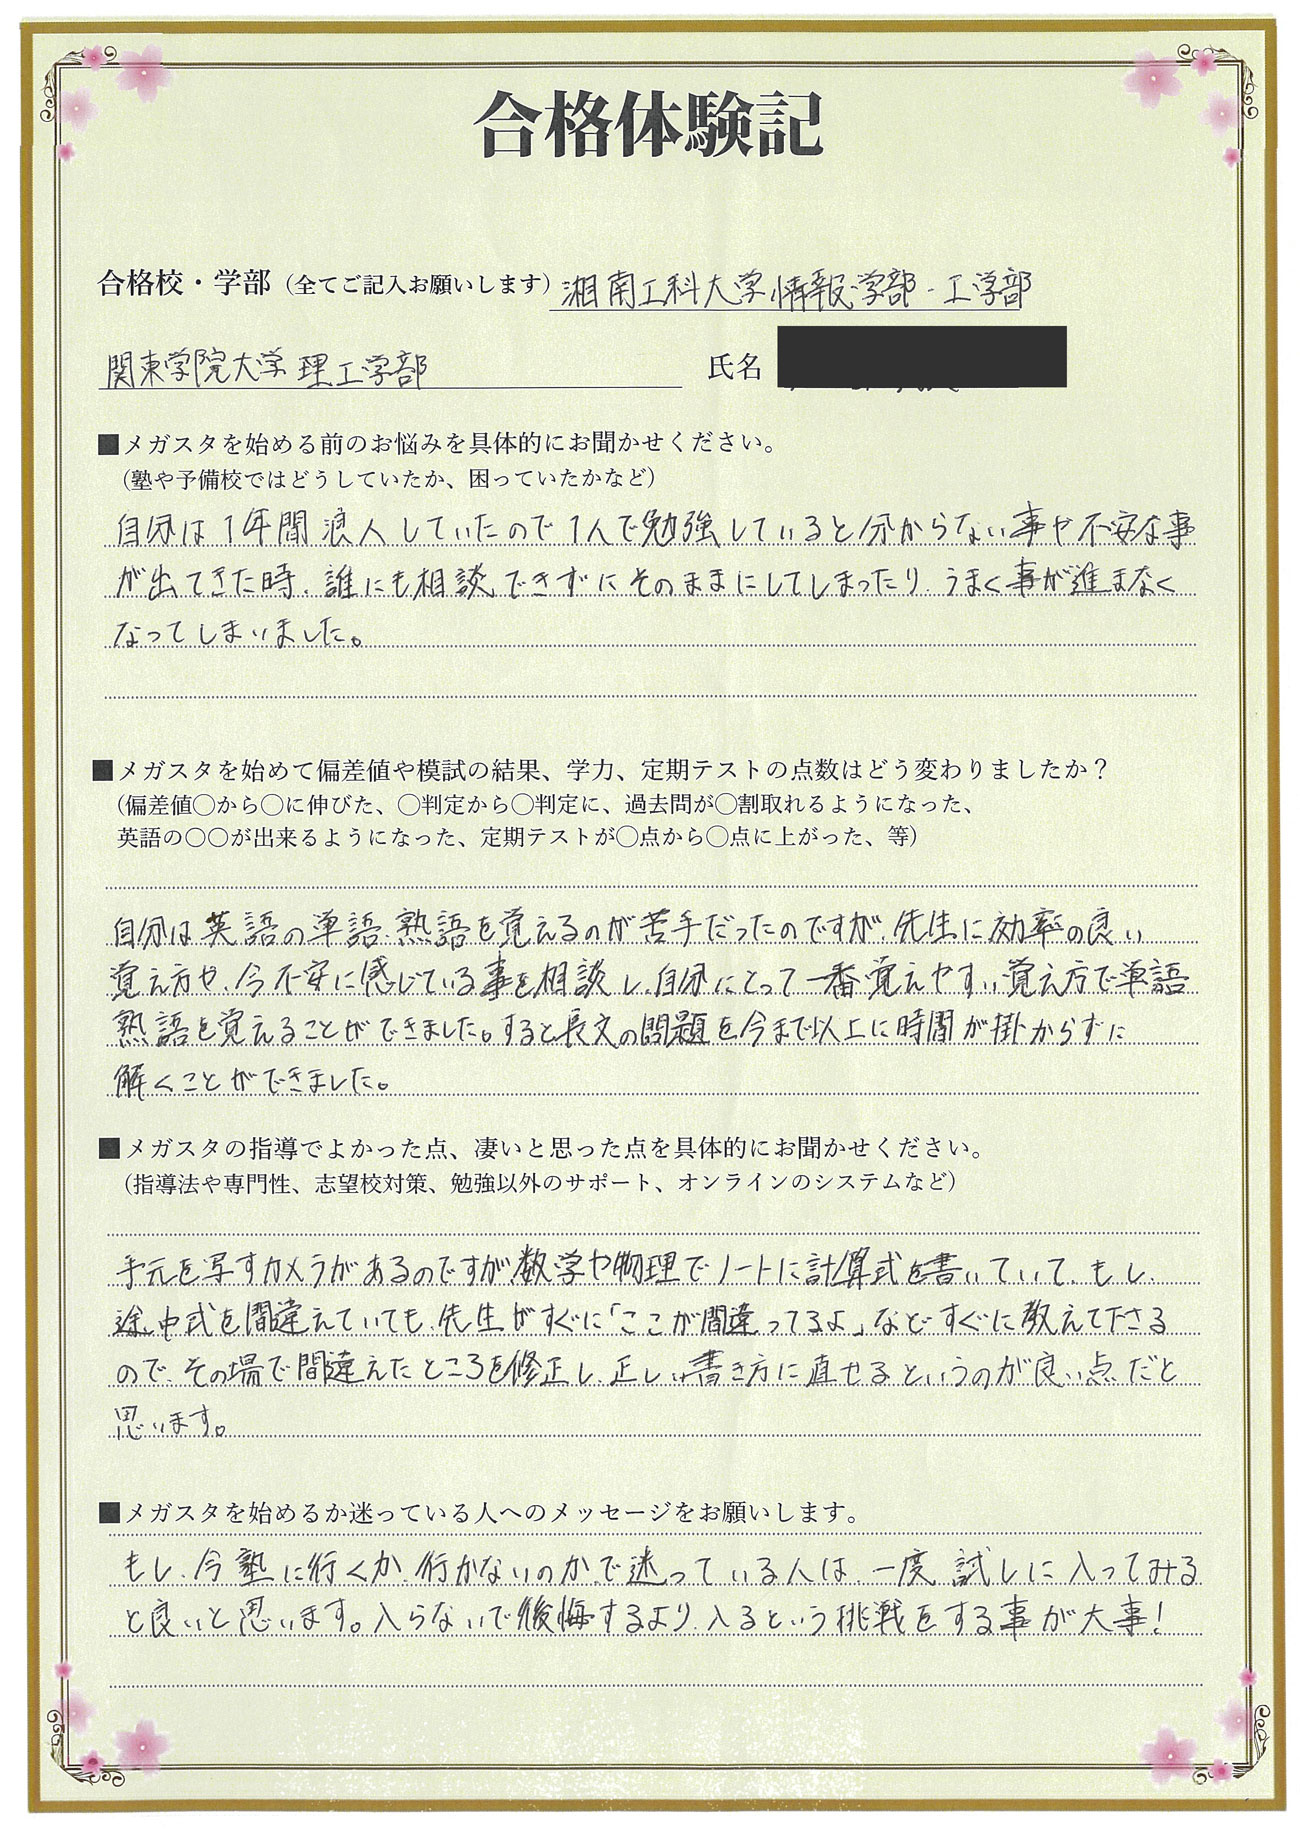 合格体験記
合格校・学部（全てご記入お願いします）湘南工科大学情報学部・工学部
関東学院大学 理工学部 氏名
■メガスタを始める前のお悩みを具体的にお聞かせください。
（塾や予備校ではどうしていたか、困っていたかなど）
自分は1年間浪人していたので1人で勉強していると分からない事や不安な事
が出てきた時、誰にも相談できずにそのままにしてしまったり、うまく事が進まなく
なってしまいました。
■メガスタを始めて偏差値や模試の結果、学力、定期テストの点数はどう変わりましたか？
（偏差値〇から〇に伸びた、〇判定から〇判定に、過去問が〇割取れるようになった、
英語の〇〇が出来るようになった、定期テストが〇点から〇点に上がった、等）
自分は英語の単語、熟語を覚えるのが苦手だったのですが、先生に効率の良い
覚え方や、今不安に感じている事を相談し、自分にとって一番覚えやすい覚え方で単語
熟語を覚えることができました。すると長文の問題を今まで以上に時間が掛からずに
解くことができました。
■メガスタの指導でよかった点、凄いと思った点を具体的にお聞かせください。
（指導法や専門性、志望校対策、勉強以外のサポート、オンラインのシステムなど）
手元を写すカメラがあるのですが数学や物理でノートに計算式を書いていて、もし、
途中式を間違えていても、先生がすぐに「ここが間違ってるよ」などすぐに教えて下さる
ので、その場で間違えたところを修正し、正しい書き方に直せるというのが良い点だと
思います。
■メガスタを始めるか迷っている人へのメッセージをお願いします。
もし、今塾に行くか、行かないのかで迷っている人は、一度試しに入ってみる
と良いと思います。入らないで後悔するより、入るという挑戦をする事が大事！